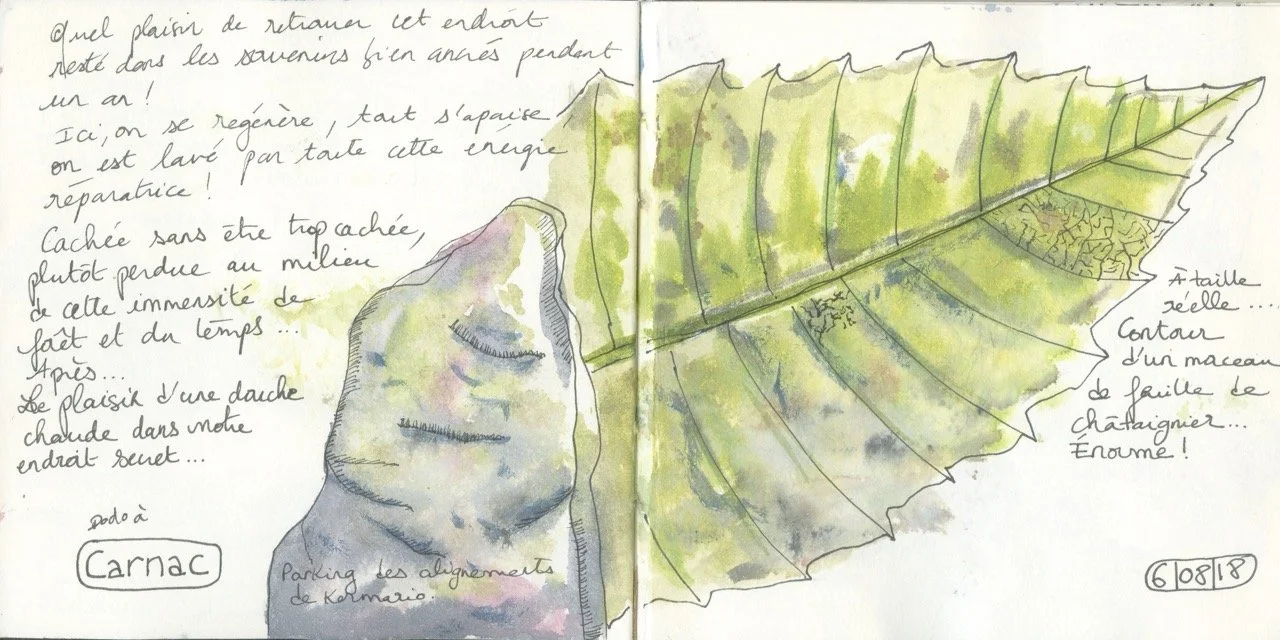 Quel plaisir de retrouver cet endroit
resté dans les souvenirs bien ancrés pendant
un an !
Ici, on se régénère, tout s'apaise,
on est lavé par toute cette énergie
réparatrice !
Cachée sans être trop cachée,
plutôt perdue au milieu
de cette immensité de
forêt et du temps ...
Après...
Le plaisir d'une douche
chaude dans notre
endroit secret ...
Dodo à
Carnac
Parking des alignements
de Kermario.
À taille
réelle ...
Contour
d'un morceau
de feuille de
châtaignier...
Énorme !
6/08/18